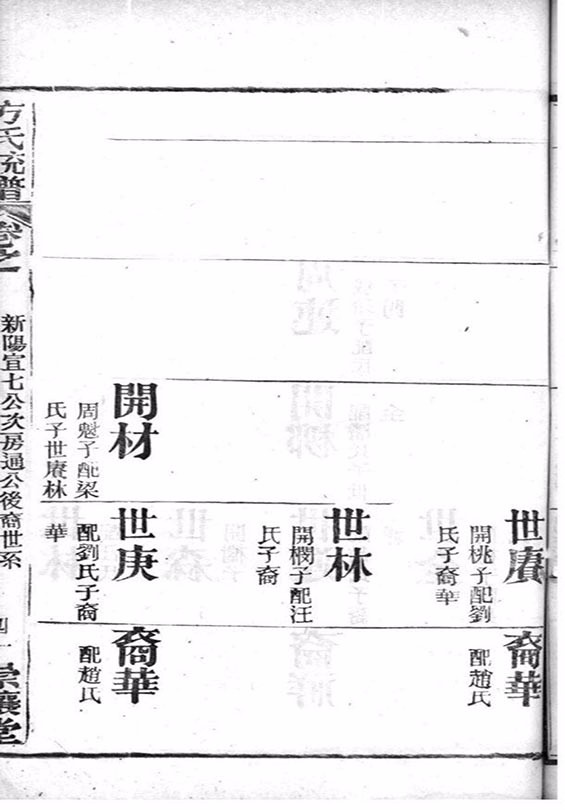 世賡
開桃子配劉
氏子裔華
裔華
配趙氏
世林
開子配汪
氏子裔
開材
周魁子配梁
氏子世賡林
世庚
配劉氏子裔
華
裔華
配趙氏
方氏統譜
卷之一
新陽宜七公次房通公後裔世系
崇讓堂